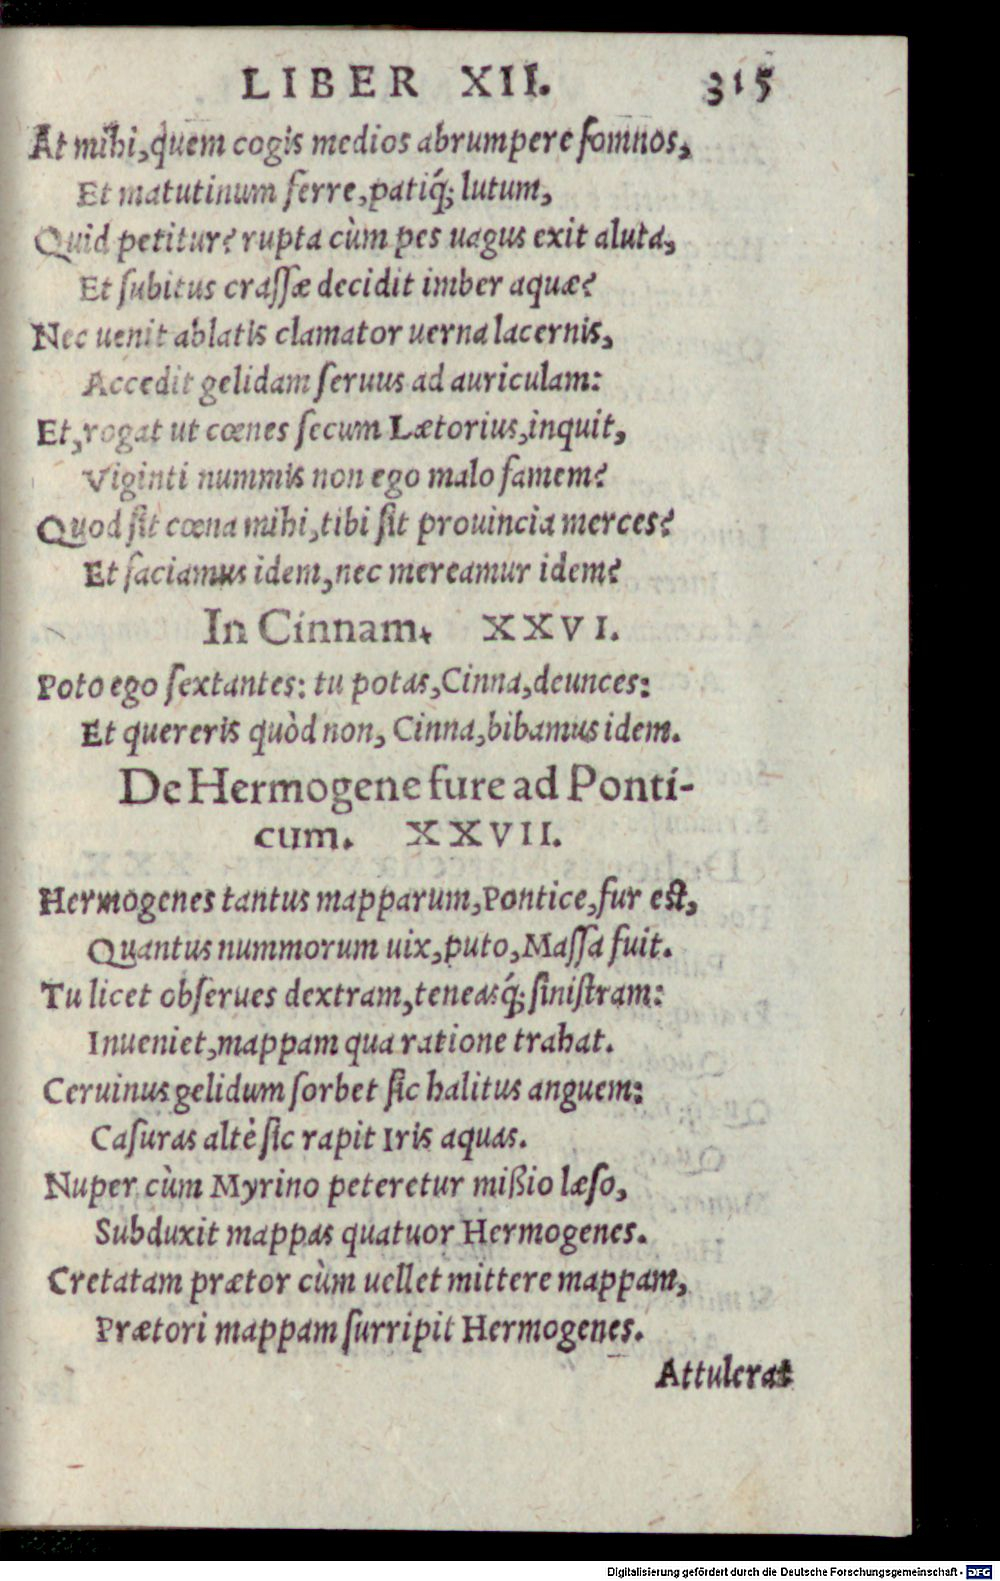 LIBER XII. 315
At mihi, quem cogis medios abrumpere somnos,
Et matutinum ferre, patiq́; lutum,
Quid petitur? rupta cùm pes uagus exit aluta,
Et subitus crassæ decidit imber aquæ?
Nec uenit ablatis clamator uerna lacernis,
Accedit gelidam seruus ad auriculam:
Et, rogat ut cœnes secum Lætorius, inquit,
Viginti nummis non ego malo famem?
Quod sit cœna mihi, tibi sit prouincia merces?
Et faciamus idem, nec mereamur idem?
In Cinnam. XXVI.
Poto ego sextantes: tu potas, Cinna, deunces:
Et quereris quòd non, Cinna, bibamus idem.
De Hermogene fure ad Ponti-
cum. XXVII.
Hermogenes tantus mapparum, Pontice, fur est,
Quantus nummorum uix, puto, Massa fuit.
Tu licet obserues dextram, teneasq́; sinistram:
Inueniet, mappam qua ratione trahat.
Ceruinus gelidum sorbet sic halitus anguem:
Casuras altè sic rapit Iris aquas.
Nuper cùm Myrino peteretur mißio læso,
Subduxit mappas quatuor Hermogenes.
Cretatam prætor cùm uellet mittere mappam,
Prætori mappam surripit Hermogenes.
Attulerat
Digitalisierung gefördert durch die Deutsche Forschungsgemeinschaft - DFG